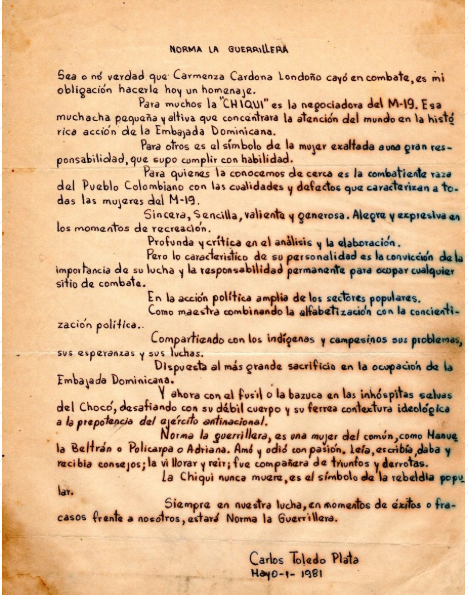 NORMA LA GUERRILLERA
Sea o nó verdad que Carmenza Cardona Londoño cayó en combate, es mi
obligación hacerle hoy un homenaje.
Para muchos la "CHIQUI" es la negociadora del M-19. Esa
muchacha pequeña y altiva que concentrara la atención del mundo en la histó
rica acción de la Embajada Dominicana.
Para otros es el símbolo de la mujer exaltada a una gran res-
ponsabilidad, que supo cumplir con habilidad.
Para quienes la conocemos de cerca es la combatiente raza
del Pueblo Colombiano con las cualidades y defectos que caracterizan a to-
das las mujeres del M-19.
Sincera, Sencilla, valiente y generosa. Alegre y expresiva en
los momentos de recreación.
Profunda y crítica en el análisis y la elaboración.
Pero lo característico de su personalidad es la convicción de la
importancia de su lucha y la responsabilidad permanente para ocupar cualquier
sitio de combate.
En la acción política amplia de los sectores populares.
Como maestra combinando la alfabetización con la concienti-
zación política..
Compartiendo con los indígenas y campesinos sus problemas,
sus esperanzas y sus luchas.
Dispuesta al más grande sacrificio en la ocupación de la
Embajada Dominicana.
Y ahora con el fusil o la bazuca en las inhóspitas selvas
del Chocó, desafiando con su débil cuerpo y su ferrea contextura ideológica
a la prepotencia del ejército antinacional.
Norma la guerrillera, es una mujer del común, como Manue
la Beltrán o Policarpa o Adriana. Amó y odió con pasión. Leía, escribía, daba y
recibia consejos; la vi llorar y reir; fue compañera de triunfos y derrotas.
La Chiqui nunca muere, es el símbolo de la rebeldia popu
lar.
Siempre en nuestra lucha, en momentos de éxitos o fra-
casos frente a nosotros, estará Norma la Guerrillera.
Carlos Toledo Plata
Mayo-1-1981